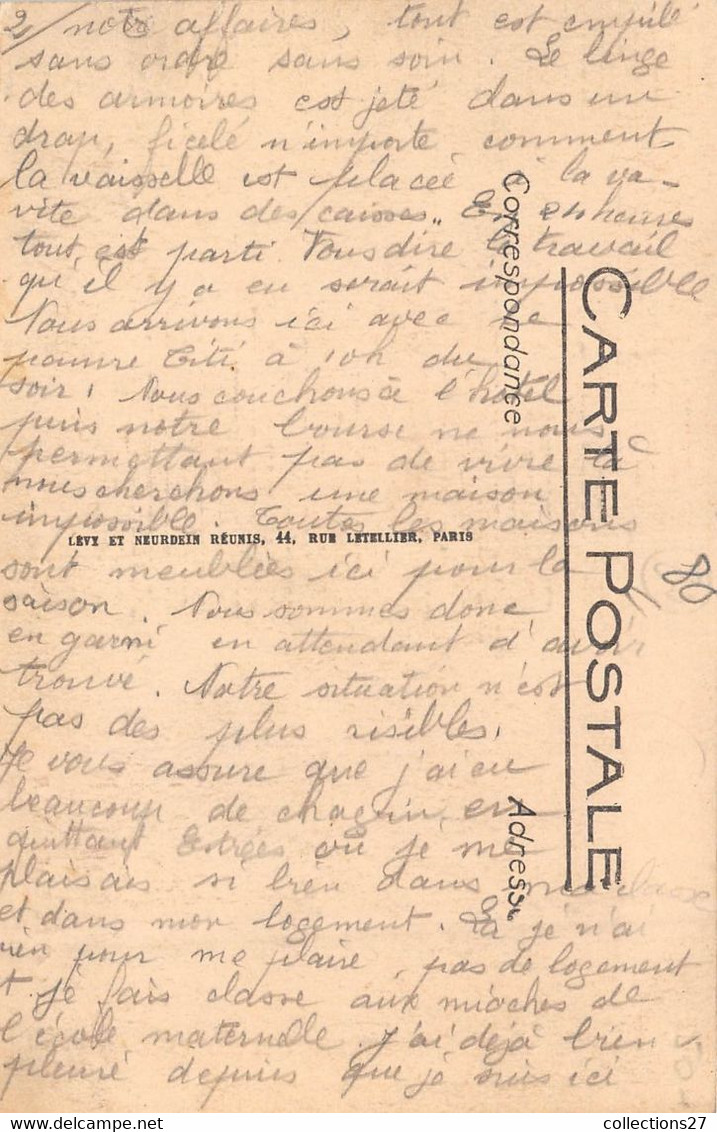 2/ notre affaires, tout est empilé
sans ordre sans soin. Le linge
des armoires est jeté dans un
drap, ficelé n'importe comment,
la vaisselle est placée à la va-
vite dans des caisses,, En 24 heures
tout est parti. Vous dire le travail
qu'il y a eu serait impossible
Nous arrivons ici avec le
pauvre Titi à 10h du
soir, Nous couchons à l'hôtel
puis notre bourse ne nous
permettant pas de vivre là
nous cherchons une maison
impossible. Toutes les maisons
sont meublées ici pour la
saison. Nous sommes donc
en garni en attendant d'avoir
trouvé. Notre situation n'est
pas des plus risibles,
Je vous assure que j'ai eu
beaucoup de chagrin en
quittant Estrées où je me
plaisais si bien dans ma classe
et dans mon logement. Là je n'ai
rien pour me plaire, pas de logement
et je fais classe aux mioches de
l'école maternelle. J'ai déjà bien
pleuré depuis que je suis ici
LÉVY ET NEURDEIN RÉUNIS, 44, RUE LETELLIER, PARIS
CARTE POSTALE
Correspondance
Adresse
80
collections27